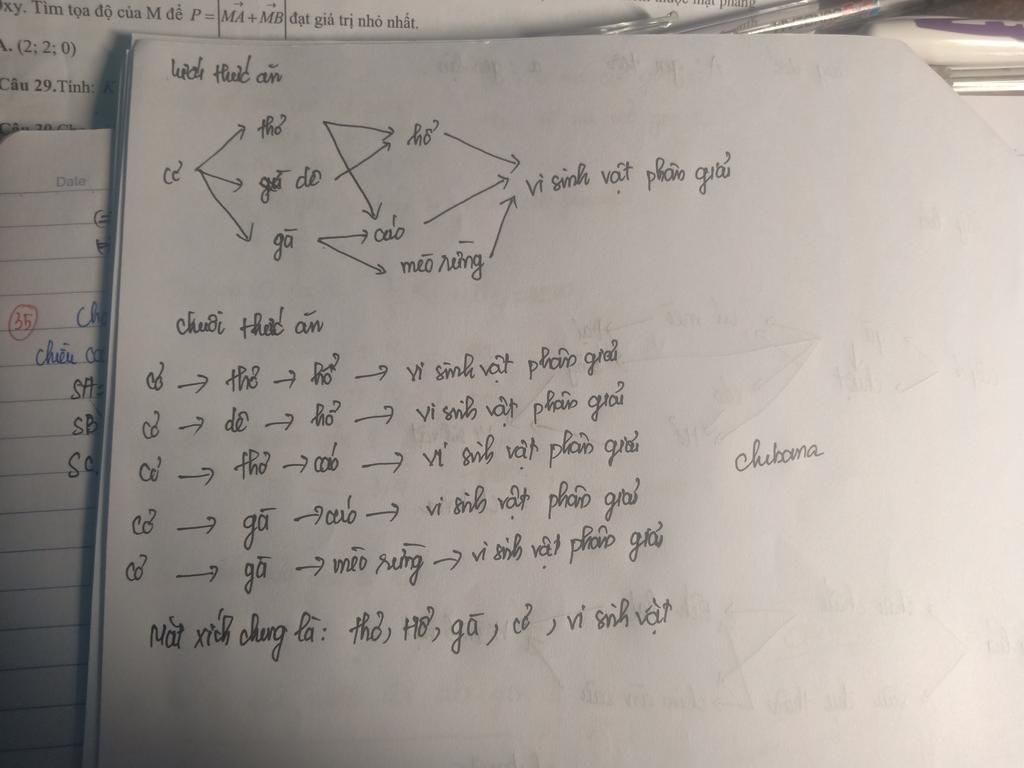 Oxy. Tìm tọa độ của M để P = |MA + MB| đạt giá trị nhỏ nhất.
A. (2; 2; 0)
Câu 29. Tính: K
Date
35
chiều ca
SA
SB
SC
lưới thức ăn
cỏ thỏ hổ vi sinh vật phân giải
dê
gà cáo
mèo rừng
chuỗi thức ăn
cỏ → thỏ → hổ → vi sinh vật phân giải
cỏ → dê → hổ → vi sinh vật phân giải
cỏ → thỏ → cáo → vi sinh vật phân giải
cỏ → gà → cáo → vi sinh vật phân giải
cỏ → gà → mèo rừng → vi sinh vật phân giải
chibana
Mắt xích chung là: thỏ, Hổ, gà, cỏ, vi sinh vật